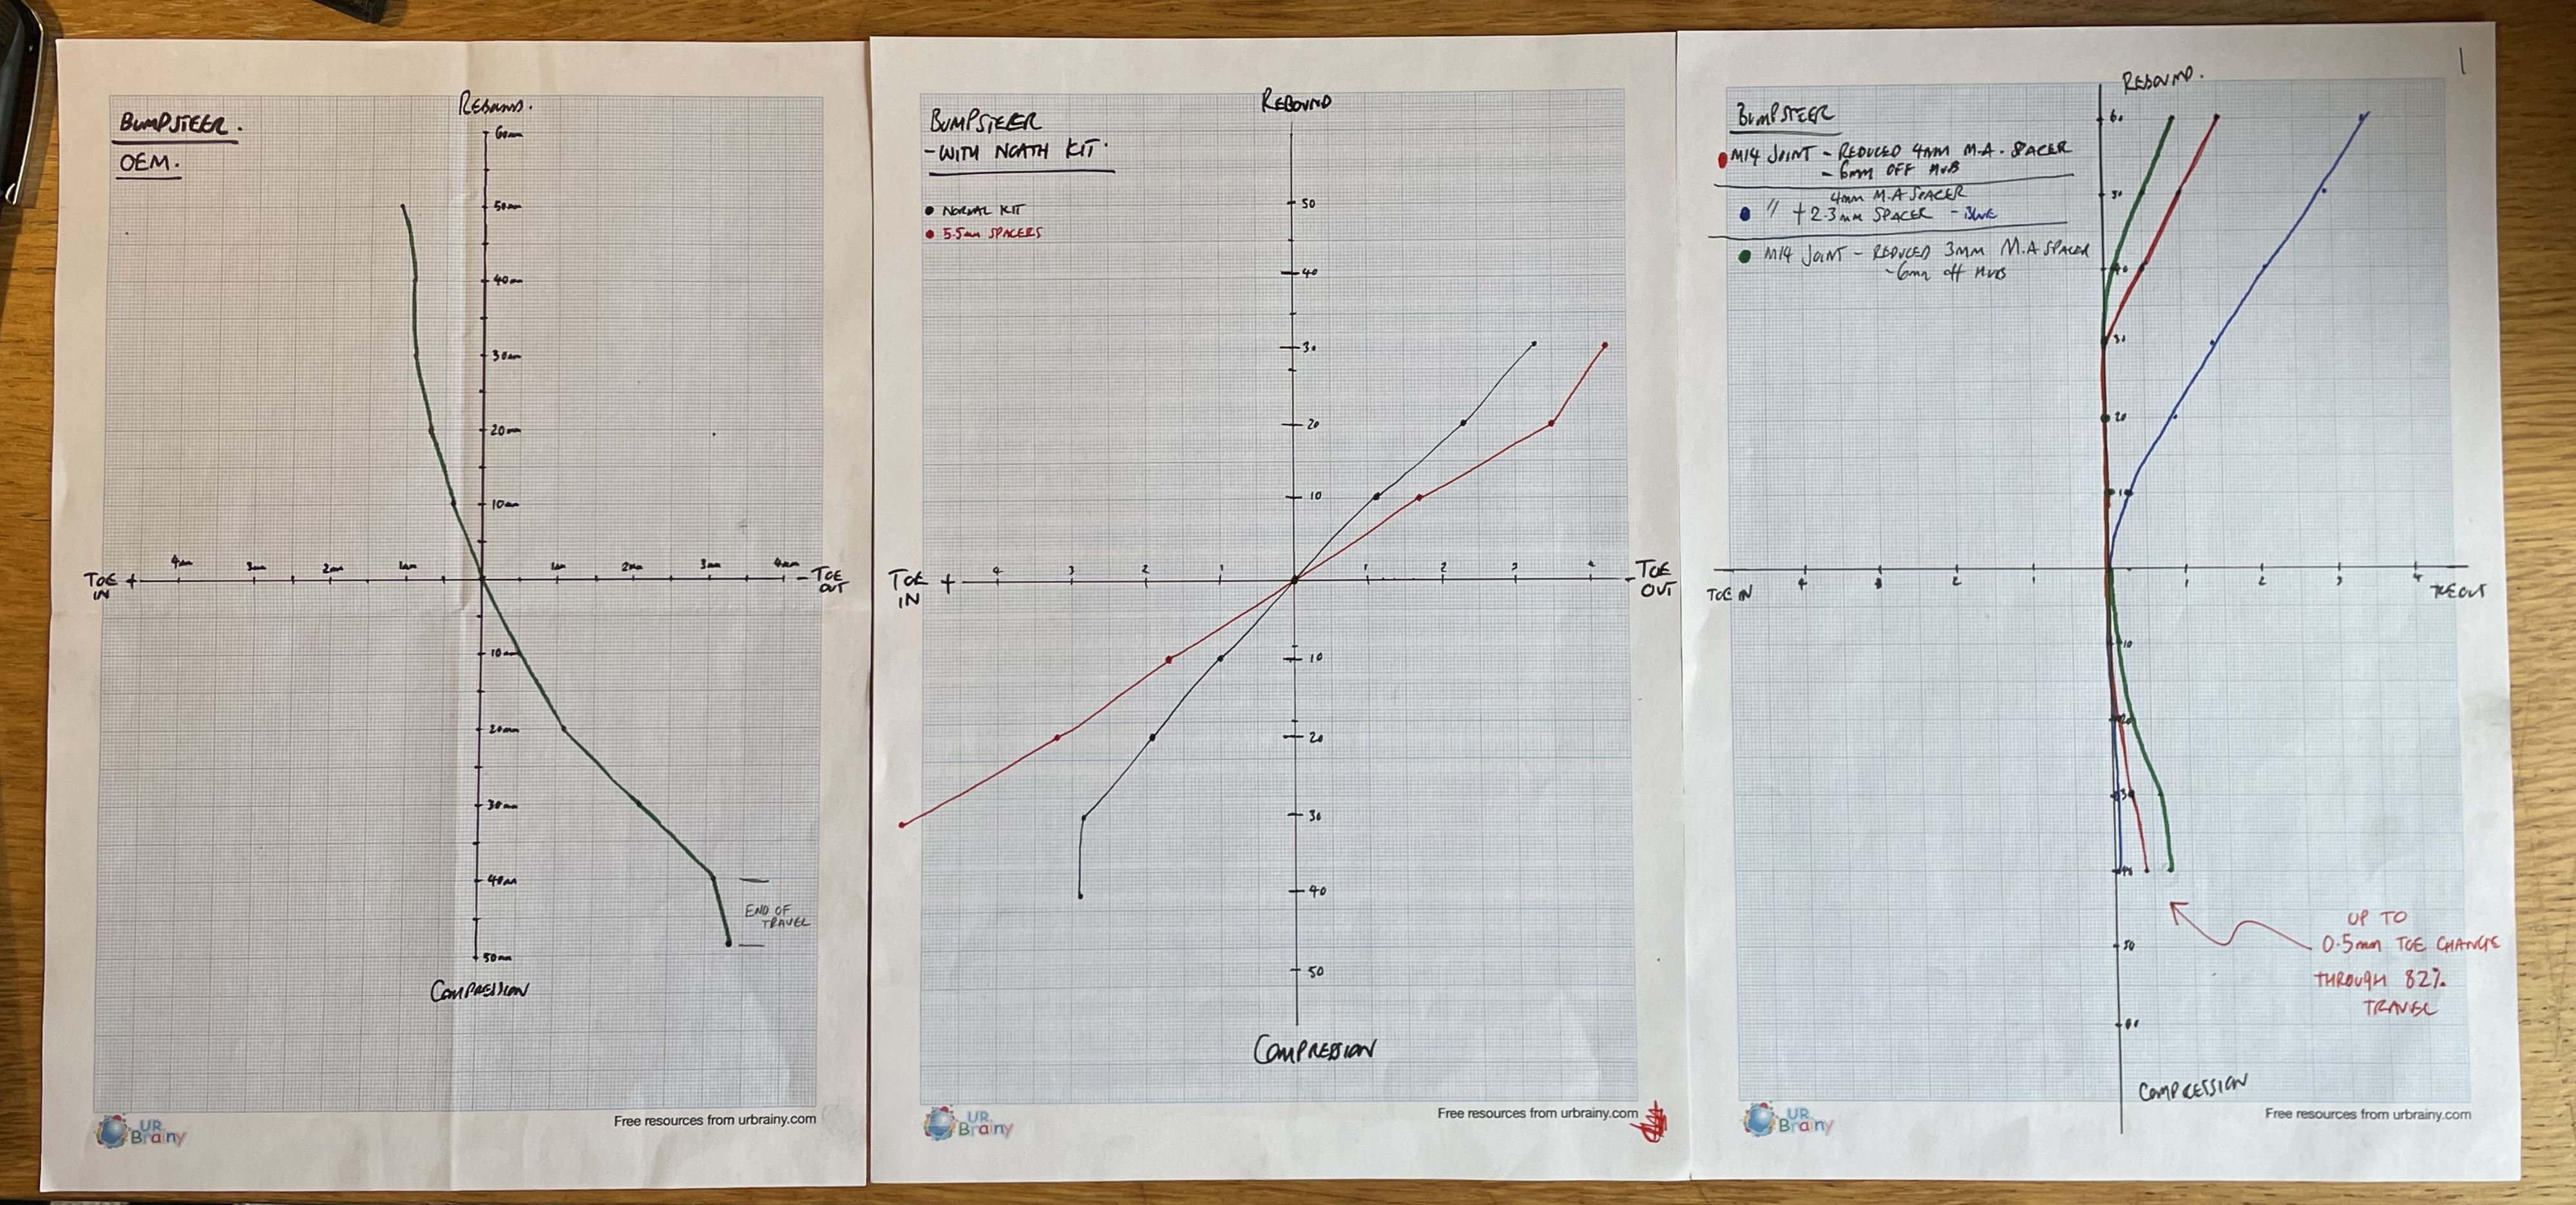 BUMPSTEER.
OEM.
REBOUND.
60mm
50mm
40mm
30mm
20mm
10mm
TOE IN + 4mm 3mm 2mm 1mm 1mm 2mm 3mm 4mm - TOE OUT
10mm
20mm
30mm
40mm
END OF
TRAVEL
50mm
COMPRESSION
UR Brainy
Free resources from urbrainy.com
BUMPSTEER
- WITH NOATH KIT.
NORMAL KIT
5.5mm SPACERS
REBOUND
50
40
30
20
10
TOE IN + 4 3 2 1 1 2 3 4 - TOE OUT
10
20
30
40
50
COMPRESSION
UR Brainy
Free resources from urbrainy.com
1
BUMPSTEER
M14 JOINT - REDUCED 4mm M.A. SPACER
- 6mm OFF HUB
4mm M.A SPACER
" + 2.3mm SPACER - BLUE
M14 JOINT - REDUCED 3mm M.A SPACER
- 6mm off HUB
REBOUND.
60
50
40
30
20
10
TOE IN 4 3 2 1 1 2 3 4 TOE OUT
10
20
30
40
50
60
UP TO
0.5mm TOE CHANGE
THROUGH 82%
TRAVEL
COMPRESSION
UR Brainy
Free resources from urbrainy.com